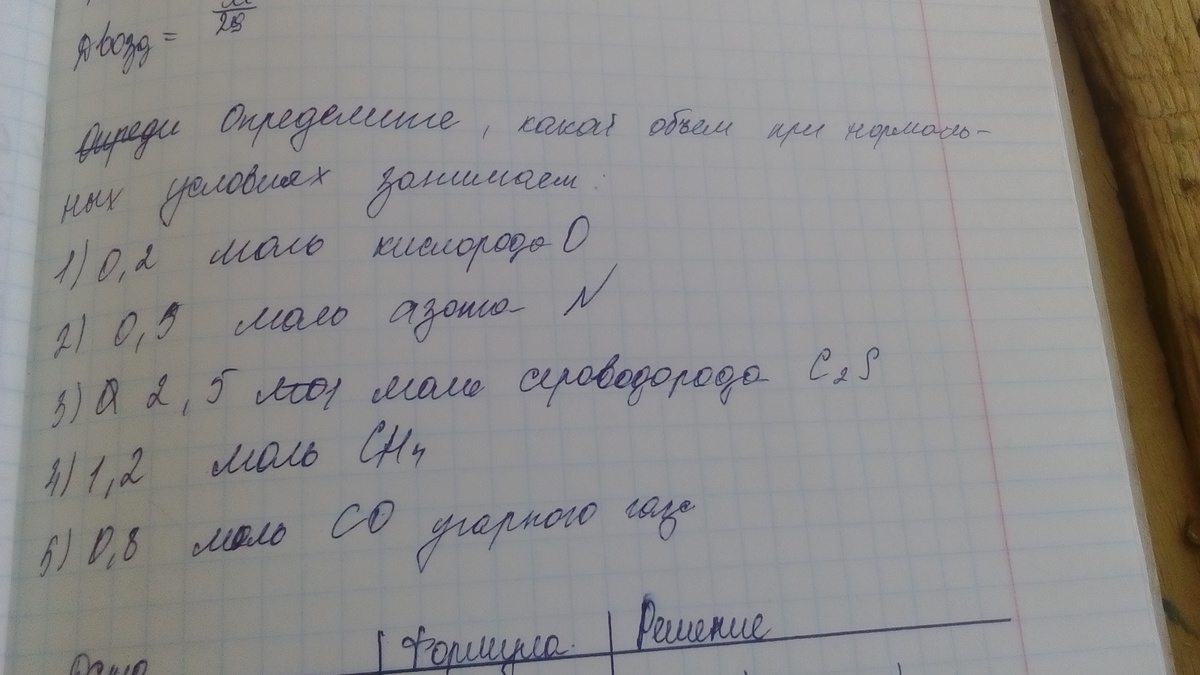 Dвозд = м/29
Опреди Определите, какой объем при нормаль-
ных условиях занимает:
1) 0,2 моль кислорода O
2) 0,5 моль азота N
3) 2,5 моль сероводорода C₂S
4) 1,2 моль CH₄
5) 0,8 моль CO угарного газа
Дано Формула. Решение